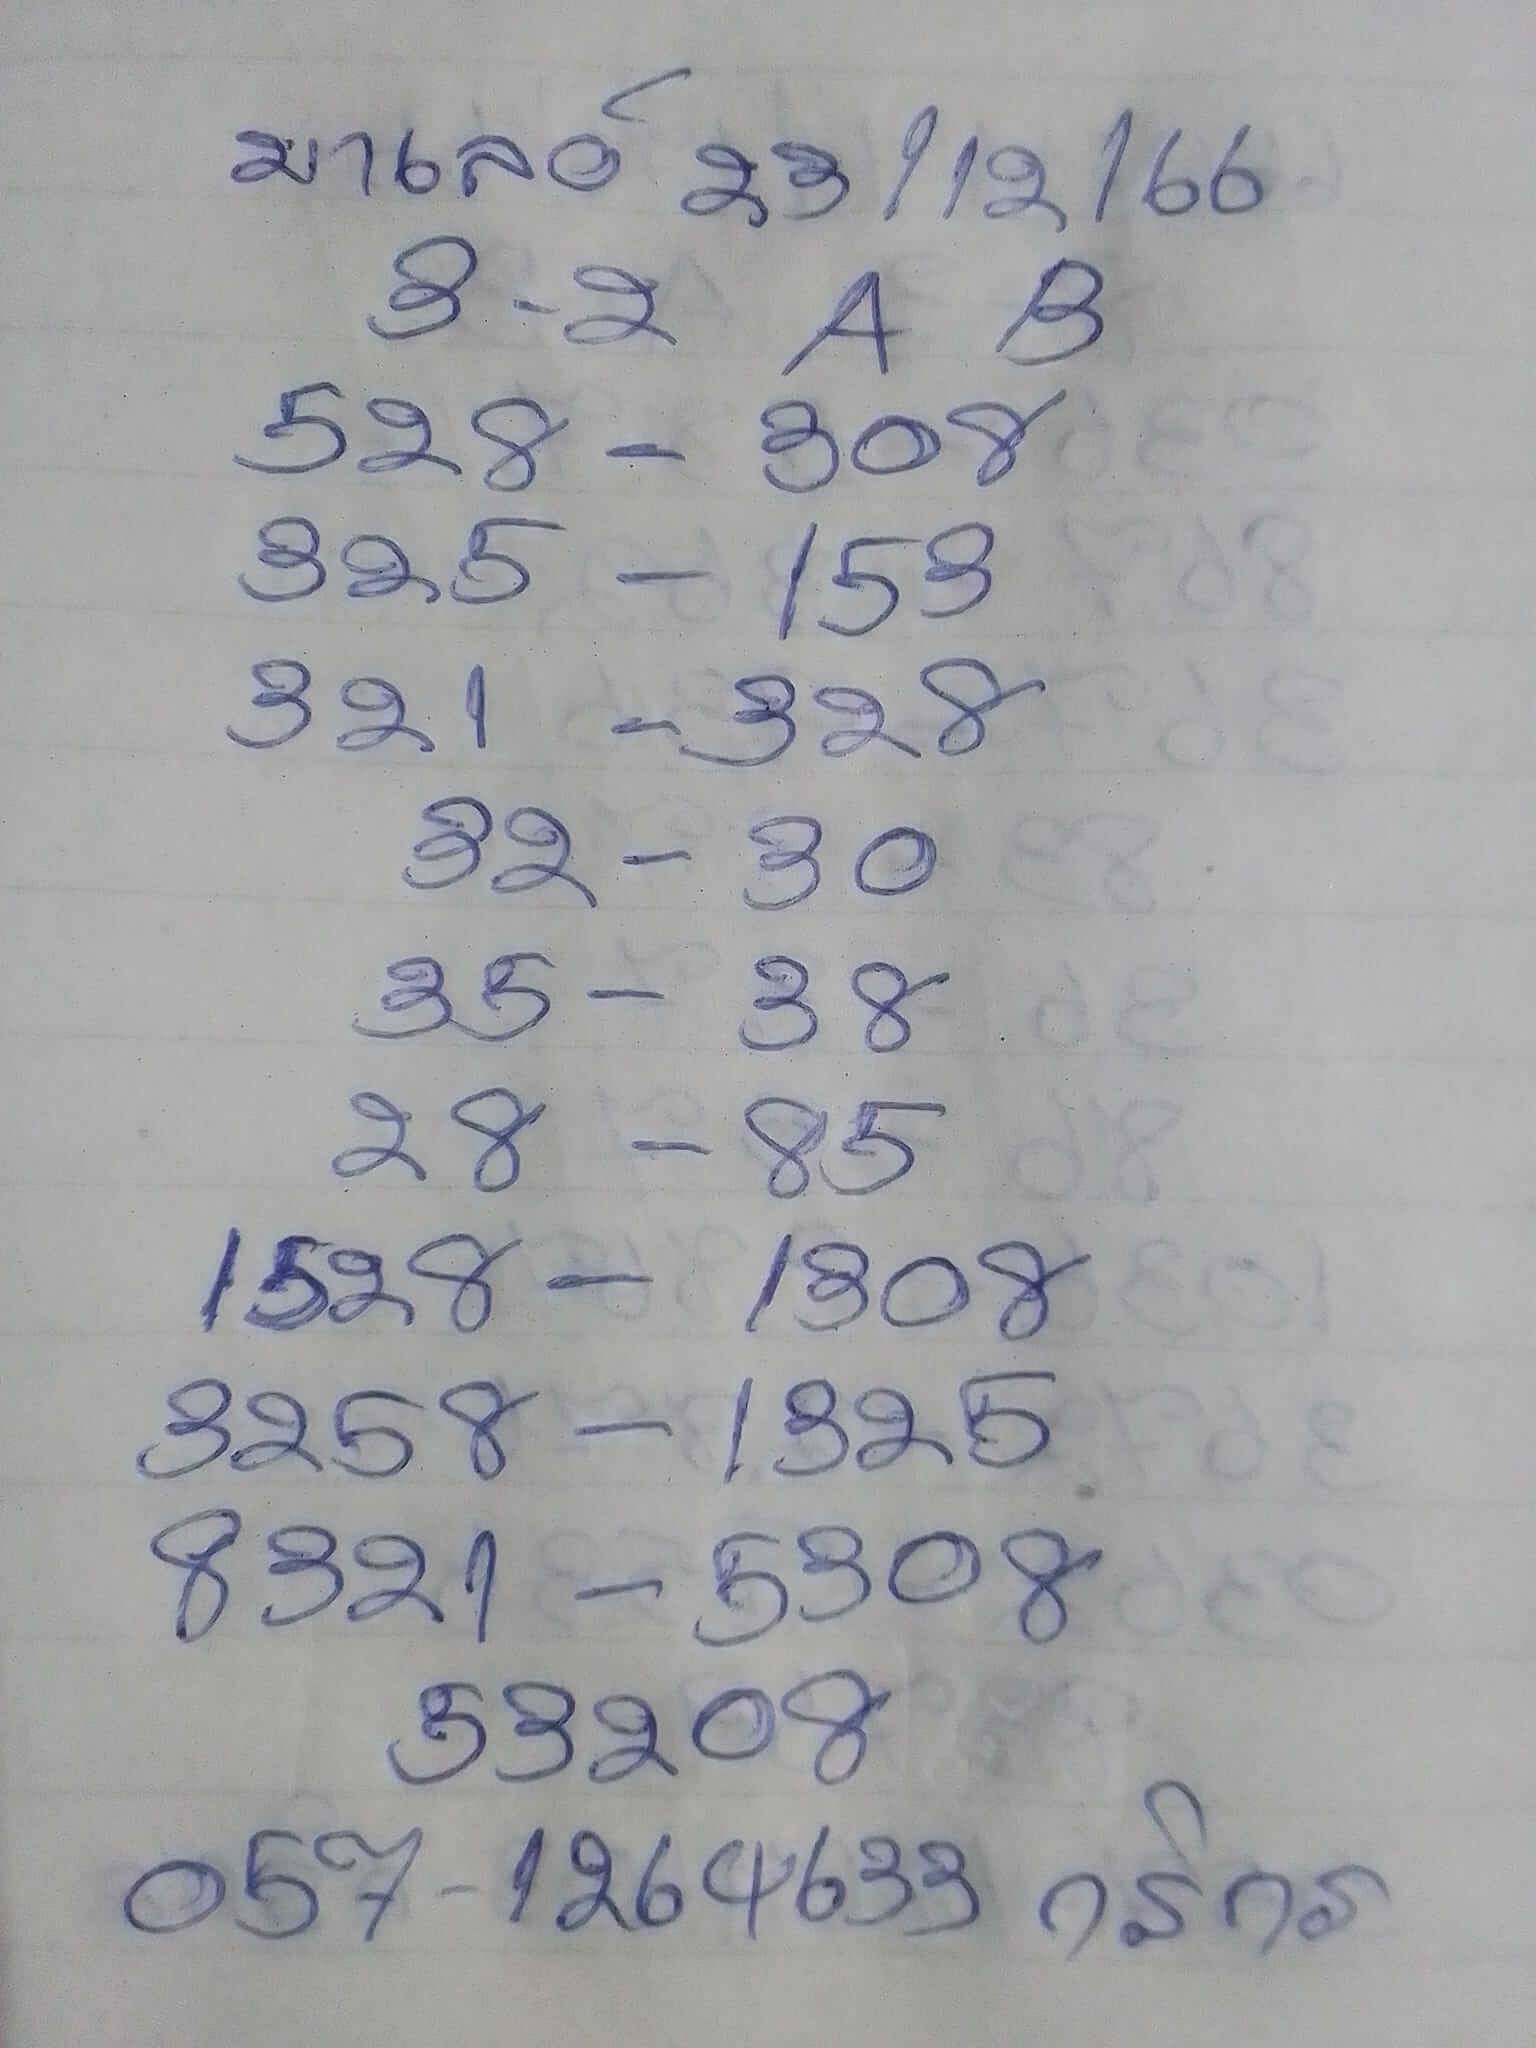 มาเลย์ 23/12/66
3-2 A B
528 - 308
325 - 153
321 - 328
32 - 30
35 - 38
28 - 85
1528 - 1308
3258 - 1325
8321 - 5308
53208
057-1264633 กสิกร